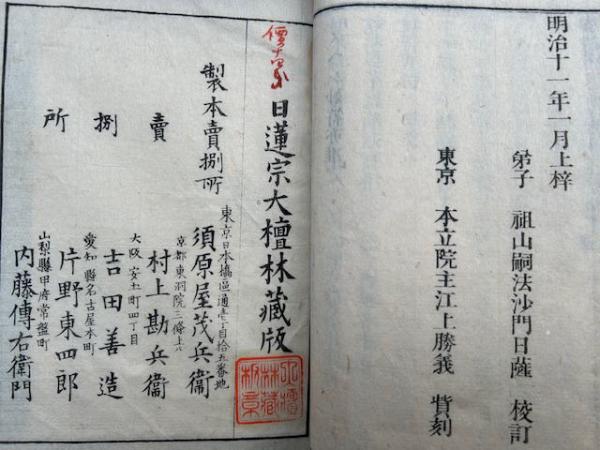 明治十一年一月上梓
弟子 祖山嗣法沙門日薩 校訂
東京 本立院主江上勝義 貲刻
日蓮宗大檀林藏版
製本賣捌所
東京日本橋區通壱丁目拾五番地
須原屋茂兵衞
京都東洞院三條上ル
村上勘兵衞
大阪安土町四丁目
吉田善造
愛知縣名古屋本町
片野東四郎
山梨縣甲府常盤町
内藤傳右衞門
賣
捌
所